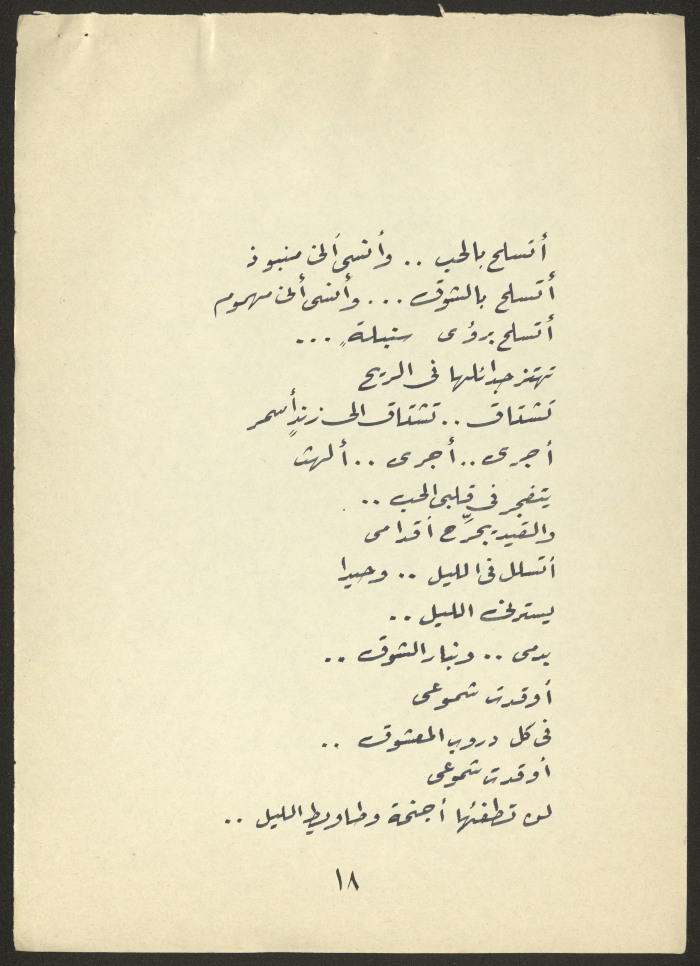 أتسلح بالحب .. وأنسى أنى منبوذ
أتسلح بالشوق ... وأنسى أنى مهموم
أتسلح برؤى سنبلةٍ ...
تهتز جدائلها فى الريح
تشتاق .. تشتاق الى زندٍ أسمر
أجرى .. أجرى .. ألهث
يتفجر فى قلبى الحب ..
والقيد يجرِّح أقدامى
أتسلل فى الليل .. وحيدا
يسترنى الليل ..
بدمى .. وبنار الشوق ..
أوقدت شموعى
فى كل دروب المعشوق ..
أوقدت شموعى
لن تطفئها أجنحة وطاويط الليل ..
١٨